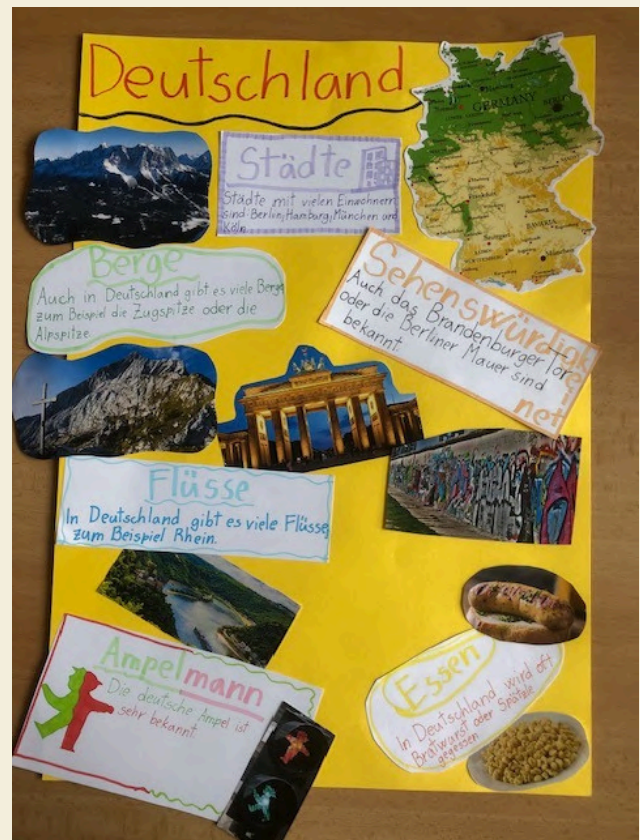 Deutschland
GERMANY
Hamburg
BAVARIA
München
Städte
Städte mit vielen Einwohnern
sind: Berlin, Hamburg, München und
Köln.
Berge
Auch in Deutschland gibt es viele Berge
zum Beispiel die Zugspitze oder die
Alpspitze.
Sehenswürdigkeinet
Auch das Brandenburger Tore
oder die Berliner Mauer sind
bekannt.
Flüsse
In Deutschland gibt es viele Flüsse,
zum Beispiel Rhein.
Ampelmann
Die deutsche Ampel ist
sehr bekannt
Essen
In Deutschland wird oft
Bratwurst oder Spätzle
gegessen